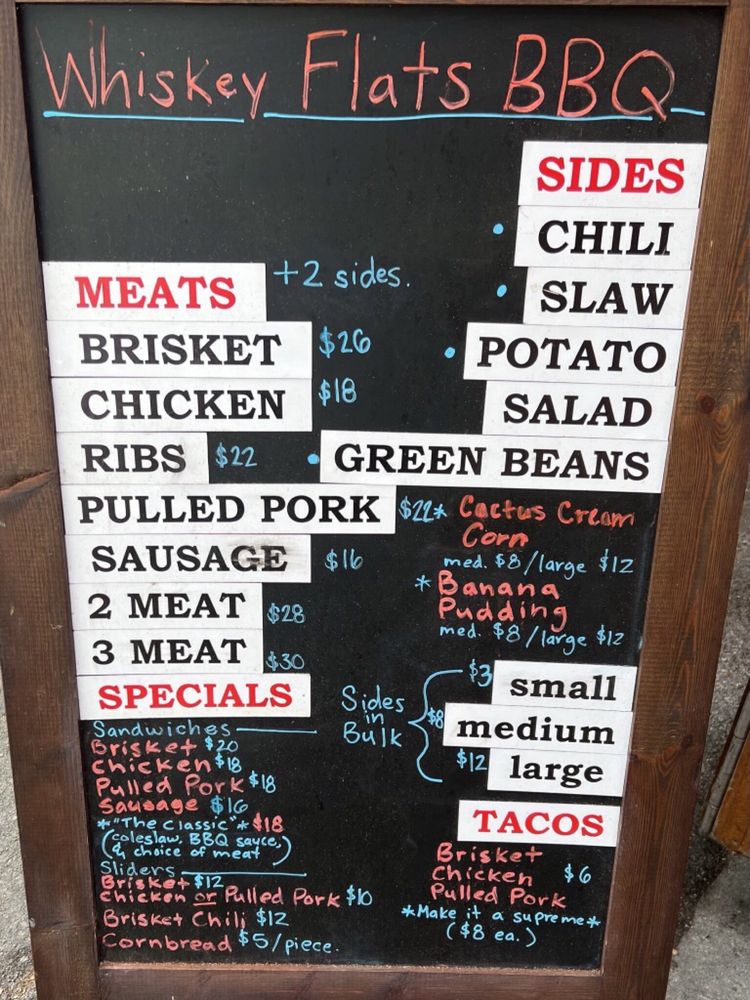 Whiskey Flats BBQ
MEATS +2 sides.
BRISKET $26
CHICKEN $18
RIBS $22
PULLED PORK $22
SAUSAGE $16
2 MEAT $28
3 MEAT $30
SPECIALS
Sandwiches
Brisket $20
Chicken $18
Pulled Pork $18
Sausage $16
*"The Classic"* $18
(coleslaw, BBQ sauce,
& choice of meat)
Sliders
Brisket $12
Chicken or Pulled Pork $10
Brisket Chili $12
Cornbread $5/piece.
SIDES
• CHILI
• SLAW
• POTATO
SALAD
• GREEN BEANS
* Cactus Cream
Corn
med. $8/large $12
* Banana
Pudding
med. $8/large $12
Sides
in
Bulk
$3 small
$8 medium
$12 large
TACOS
Brisket
Chicken $6
Pulled Pork
*Make it a supreme*
($8 ea.)